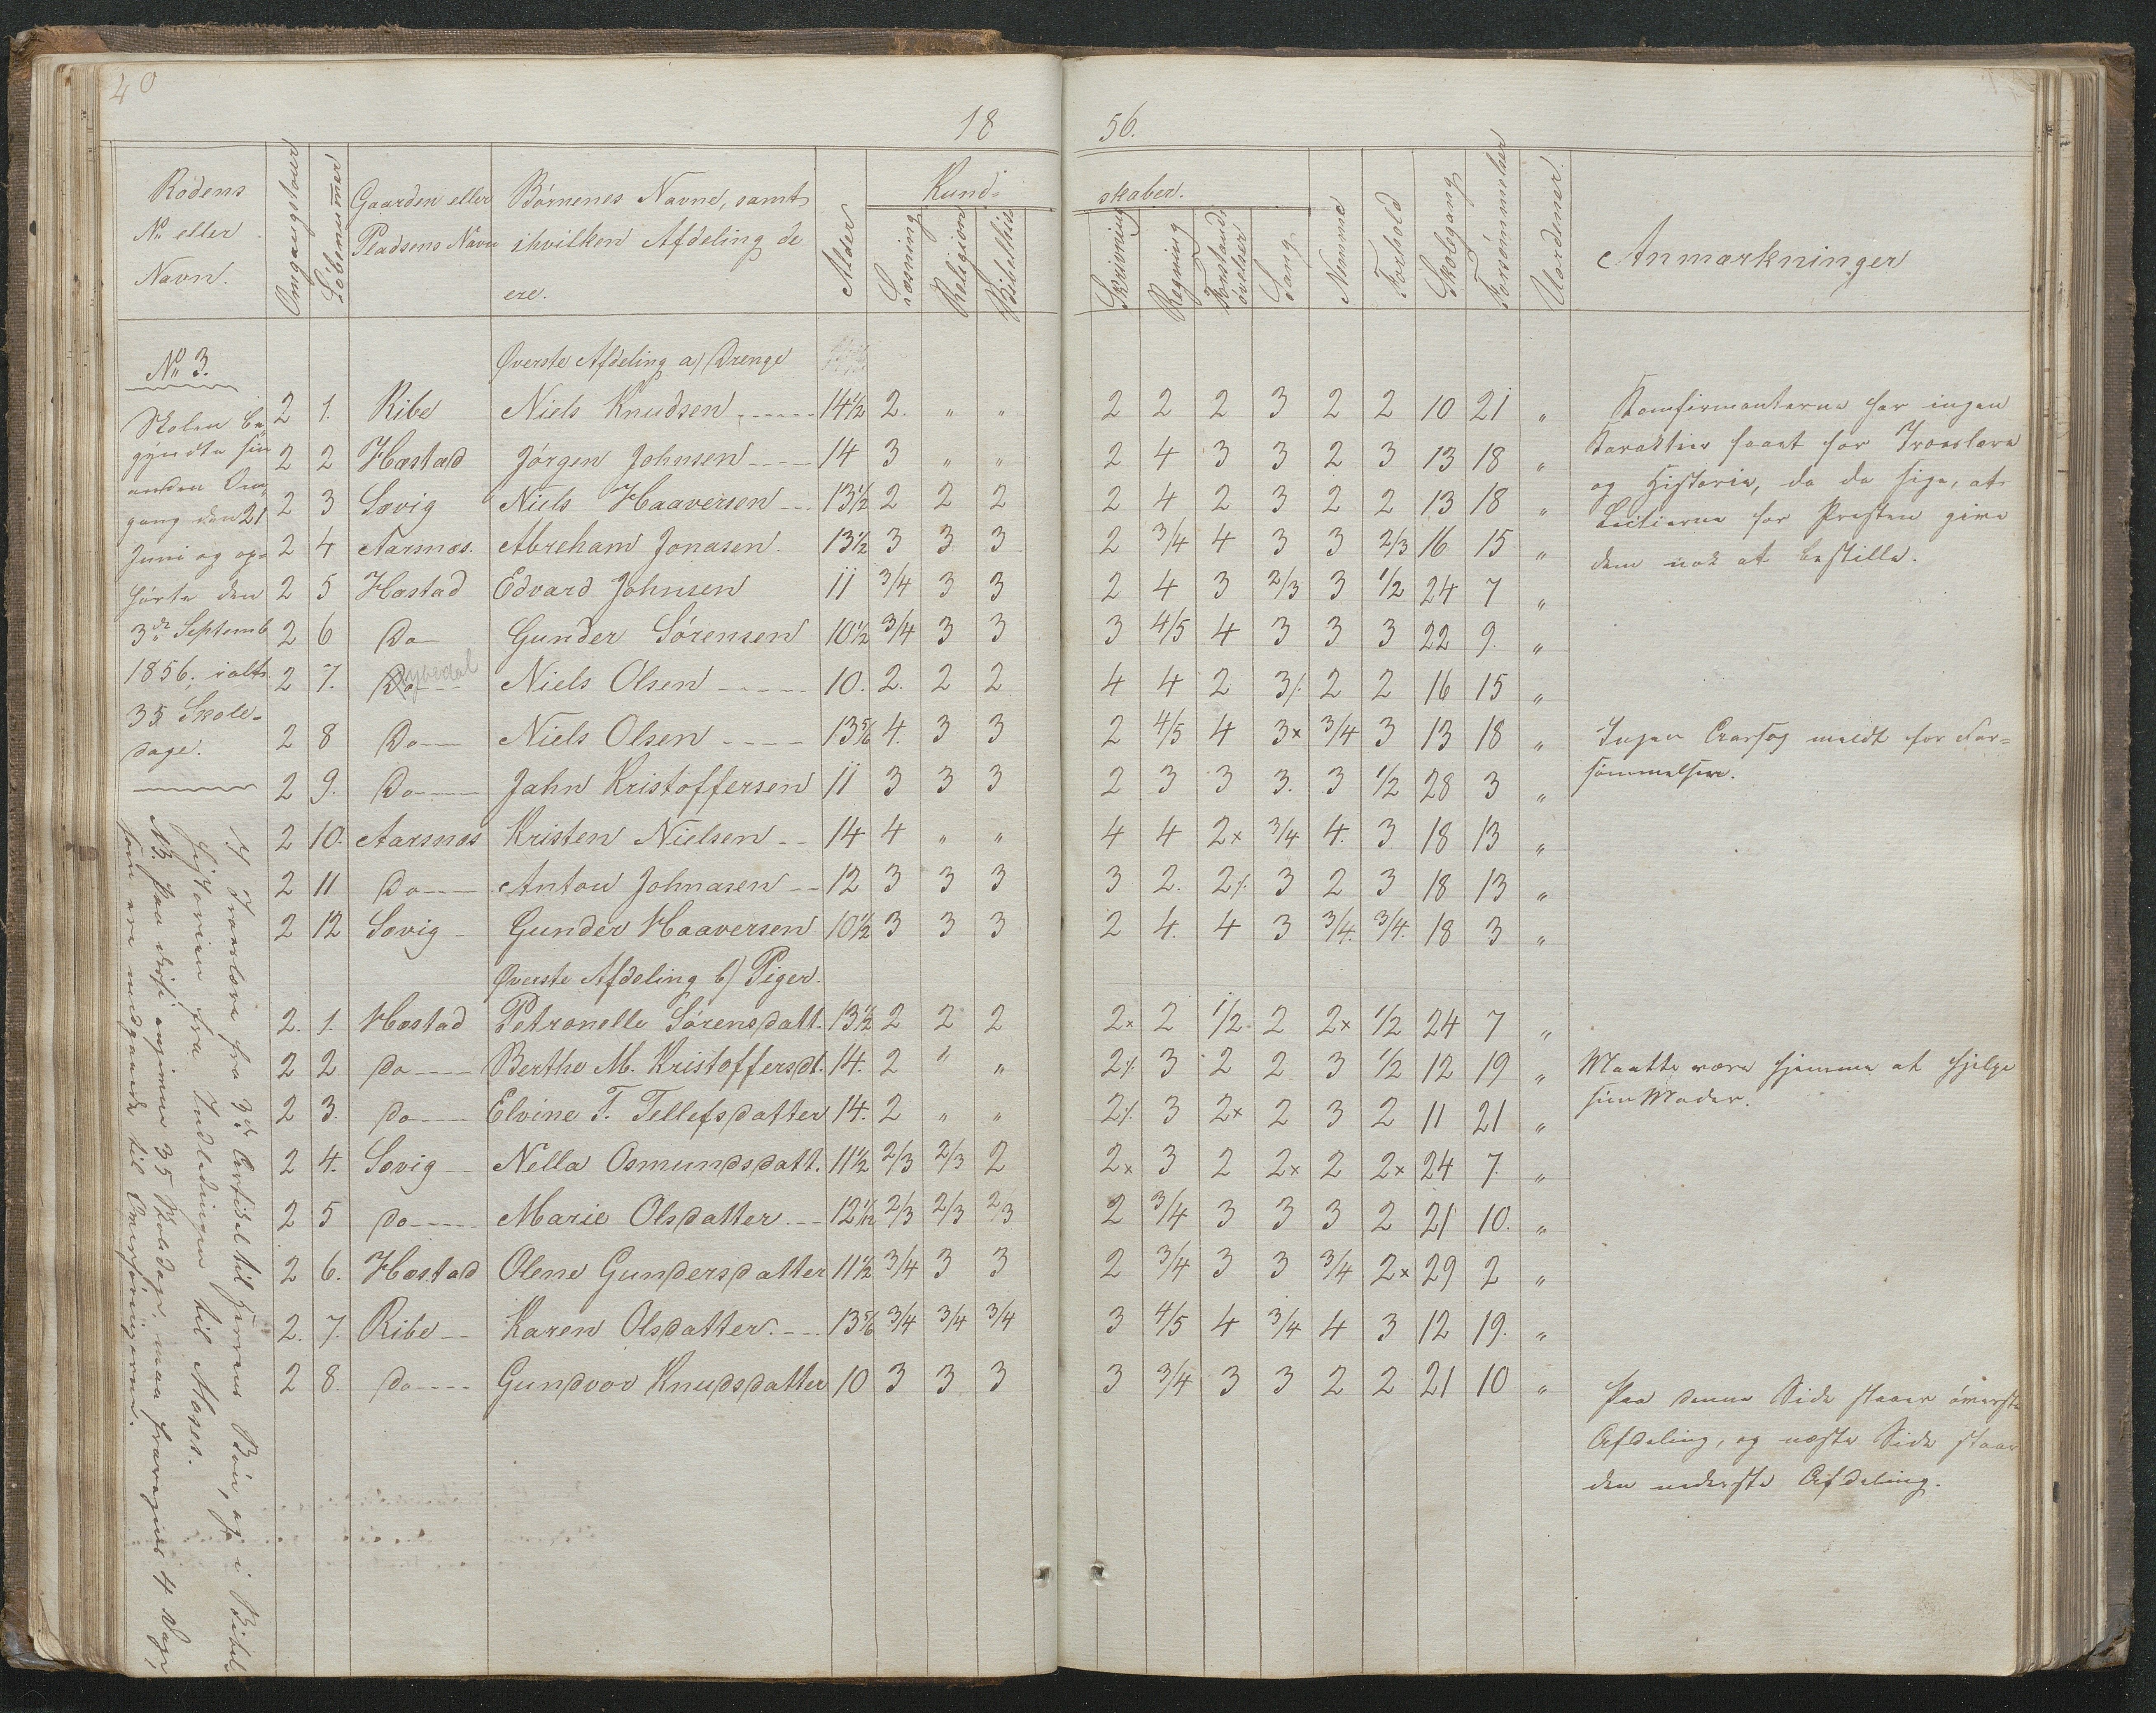 40
18 56.
Rodens No eller Navn. | Omgangstour | Löbenummer | Gaarden eller Pladsens Navn | Börnenes Navne, samt ihvilken Afdeling de ere. | Alder | Kundskaber. | Læsning | Religion | Bibelhis | Skrivning | Regning | Forstands övelser | Sang | Nemme | Forhold | Skolegang | Forsömmelser | Uordener. | Anmærkninger
No 3.
Øverste Afdeling a) Drenge
2 1. Ribe Niels Knudsen 14½ 2. " " 2 2 2 3 2 2 10 21 "
2 2 Hæstad Jörgen Johnsen 14 3 " " 2 4 3 3 2 3 13 18 "
2 3 Sævig Niels Haaversen 13½ 2 2 2 2 4 2 3 2 2 13 18 "
2 4 Aarsnæs. Abreham Jonasen. 13½ 3 3 3 2 3/4 4 3 3 2/3 16 15 "
2 5 Hæstad Edvard Johnsen 11 3/4 3 3 2 4 3 2/3 3 1/2 24 7 "
2 6 Do Gunder Sörensen 10½ 3/4 3 3 3 4/5 4 3 3 3 22 9. "
2 7. Do Niels Olsen 10. 2. 2 2 4 4 2 3/. 2 2 16 15 "
2 8 Do Niels Olsen 13 5/6 4. 3 3 2 4/5 4 3x 3/4 3 13 18 "
2 9. Do Jahn Kristoffersen 11 3 3 3 2 3 3 3. 3 1/2 28 3 "
2 10. Aarsnæs Kristen Nielsen 14 4 " " 4 4 2x 3/4 4. 3 18 13 "
2 11 Do Anton Johnasen 12 3 3 3 3 2. 2/. 3 2 3 18 13 "
2 12 Sævig Gunder Haaversen 10½ 3 3 3 2 4. 4 3 3/4. 3/4. 18 3 "
Øverste Afdeling b) Piger.
2. 1. Hæstad Petronelle Sörensdatt. 13½ 2 2 2 2x 2 1/2 2 2x 1/2 24 7 "
2 2 do Berthe M. Kristoffersdt. 14. 2 " " 2/. 3 2 2 3 1/2 12 19 "
2 3. do Elvine T. Tellefsdatter 14. 2 " " 2/. 3 2x 2 3 2 11 21 "
2 4. Sævig Nella Osmundsdatt. 11½ 2/3 2/3 2 2x 3 2 2x 2 2x 24 7. "
2 5 do Marie Olsdatter 12 1/12 2/3 2/3 2/3 2 3/4 3 3 3 2 21 10. "
2 6. Hæstad Olene Gundersdatter 11½ 3/4 3 3 2 3/4 3 3 3/4 2x 29 2 "
2. 7. Ribe Karen Olsdatter. 13 5/6 3/4 3/4 3/4 3 4/5 4 3/4 4 3 12 19. "
2 8. do Gundvor Knudsdatter 10 3 3 3 3 3/4 3 3 2 2 21 10 "
Skolen be-
gyndte sin
anden Om-
gang den 21
Juni og op-
hörte den
3de Septemb
1856; ialt
35 Skole-
dage.
I Troeslære fra 3de Artikel til Herrens Bön, og i Bibel
historien fra Indledningen til Moses.
NB. Paa disse angivne 35 Skoledage maa fraregnes 4 Dage,
som ere medgaaede til Omreisningerne.
Konfirmanterne har ingen
Karakter faaet for Troeslære
og Historie, da de sige, at
Lectierne for Præsten give
dem nok at bestille.
Ingen Aarsag meldt for For-
sömmelsen.
Maatte være hjemme at hjelpe
sin Moder.
Paa denne Side staaer överste
Afdeling, og næste Side staar
den nederste Afdeling.